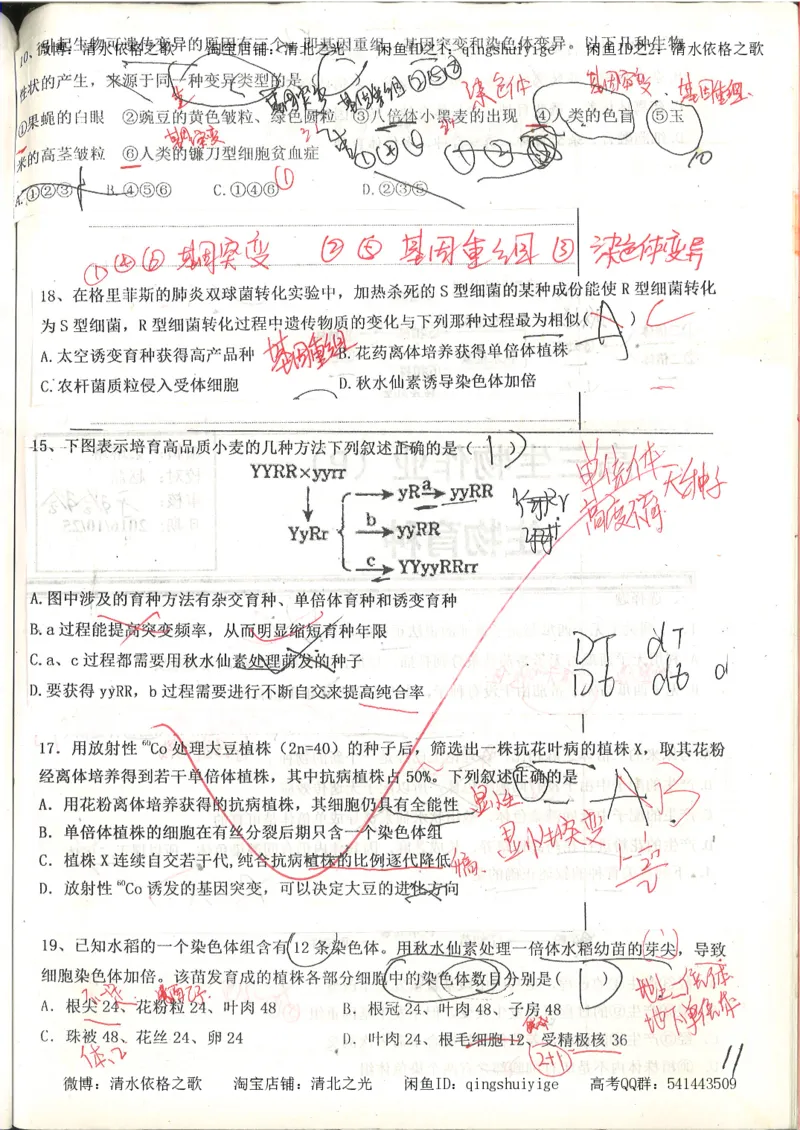 微博：清水依格之歌 淘宝店铺：清北之光 闲鱼ID之1：qingshuiyige 闲鱼ID之2：清水依格之歌
10、引起生物可遗传变异的原因有三个，即基因重组、基因突变和染色体变异。以下几种生物
性状的产生，来源于同一种变异类型的是（ ）
基因突变 基因重组②⑤ 染色体 基因突变 基因重组
①果蝇的白眼 ②豌豆的黄色皱粒、绿色圆粒 ③八倍体小黑麦的出现 ④人类的色盲 ⑤玉
米的高茎皱粒 ⑥人类的镰刀型细胞贫血症
基因突变
A.①②③ B.④⑤⑥ C.①④⑥ D.②③⑤
①
10
①④⑥ 基因突变 ②⑤ 基因重组 ③ 染色体变异
18、在格里菲斯的肺炎双球菌转化实验中，加热杀死的 S 型细菌的某种成份能使 R 型细菌转化
为 S 型细菌，R 型细菌转化过程中遗传物质的变化与下列那种过程最为相似( A ) C
A.太空诱变育种获得高产品种 基因重组 B.花药离体培养获得单倍体植株
C.农杆菌质粒侵入受体细胞 D.秋水仙素诱导染色体加倍
15、下图表示培育高品质小麦的几种方法下列叙述正确的是（ D ）
YYRR×yyrr
yR a yyRR
YyRr b yyRR
c YYyyRRrr
单倍体
高度不育
无种子
A.图中涉及的育种方法有杂交育种、单倍体育种和诱变育种
B.a 过程能提高突变频率，从而明显缩短育种年限
C.a、c 过程都需要用秋水仙素处理萌发的种子
D.要获得 yyRR，b 过程需要进行不断自交来提高纯合率
DT dT
Dt dt d
17．用放射性⁶⁰Co 处理大豆植株（2n=40）的种子后，筛选出一株抗花叶病的植株 X，取其花粉
经离体培养得到若干单倍体植株，其中抗病植株占 50%。下列叙述正确的是
A B
A．用花粉离体培养获得的抗病植株，其细胞仍具有全能性
显性
显性突变
B．单倍体植株的细胞在有丝分裂后期只含一个染色体组
C．植株 X 连续自交若干代,纯合抗病植株的比例逐代降低
偏
D．放射性⁶⁰Co 诱发的基因突变，可以决定大豆的进化方向
19、已知水稻的一个染色体组含有 12 条染色体。用秋水仙素处理一倍体水稻幼苗的芽尖，导致
细胞染色体加倍。该苗发育成的植株各部分细胞中的染色体数目分别是( D )
A．根尖 24、花粉粒 24、叶肉 48 B．根冠 24、叶肉 48、子房 48
C．珠被 48、花丝 24、卵 24 D．叶肉 24、根毛细胞 12、受精极核 36
(2+1)
11
微博：清水依格之歌 淘宝店铺：清北之光 闲鱼ID：qingshuiyige 高考QQ群：541443509